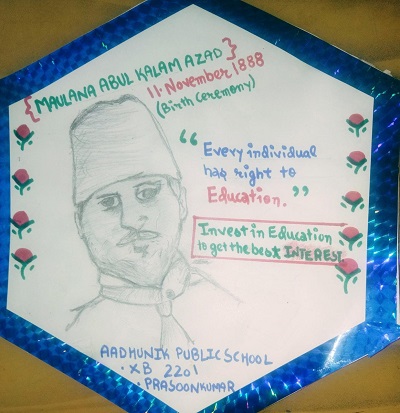 {MAULANA ABUL KALAM AZAD}
11 November 1888
(Birth Ceremony)
“Every individual
has right to
Education.”
Invest in Education
to get the best INTEREST.
AADHUNIK PUBLIC SCHOOL
• XB 2201
• PRASOONKUMAR